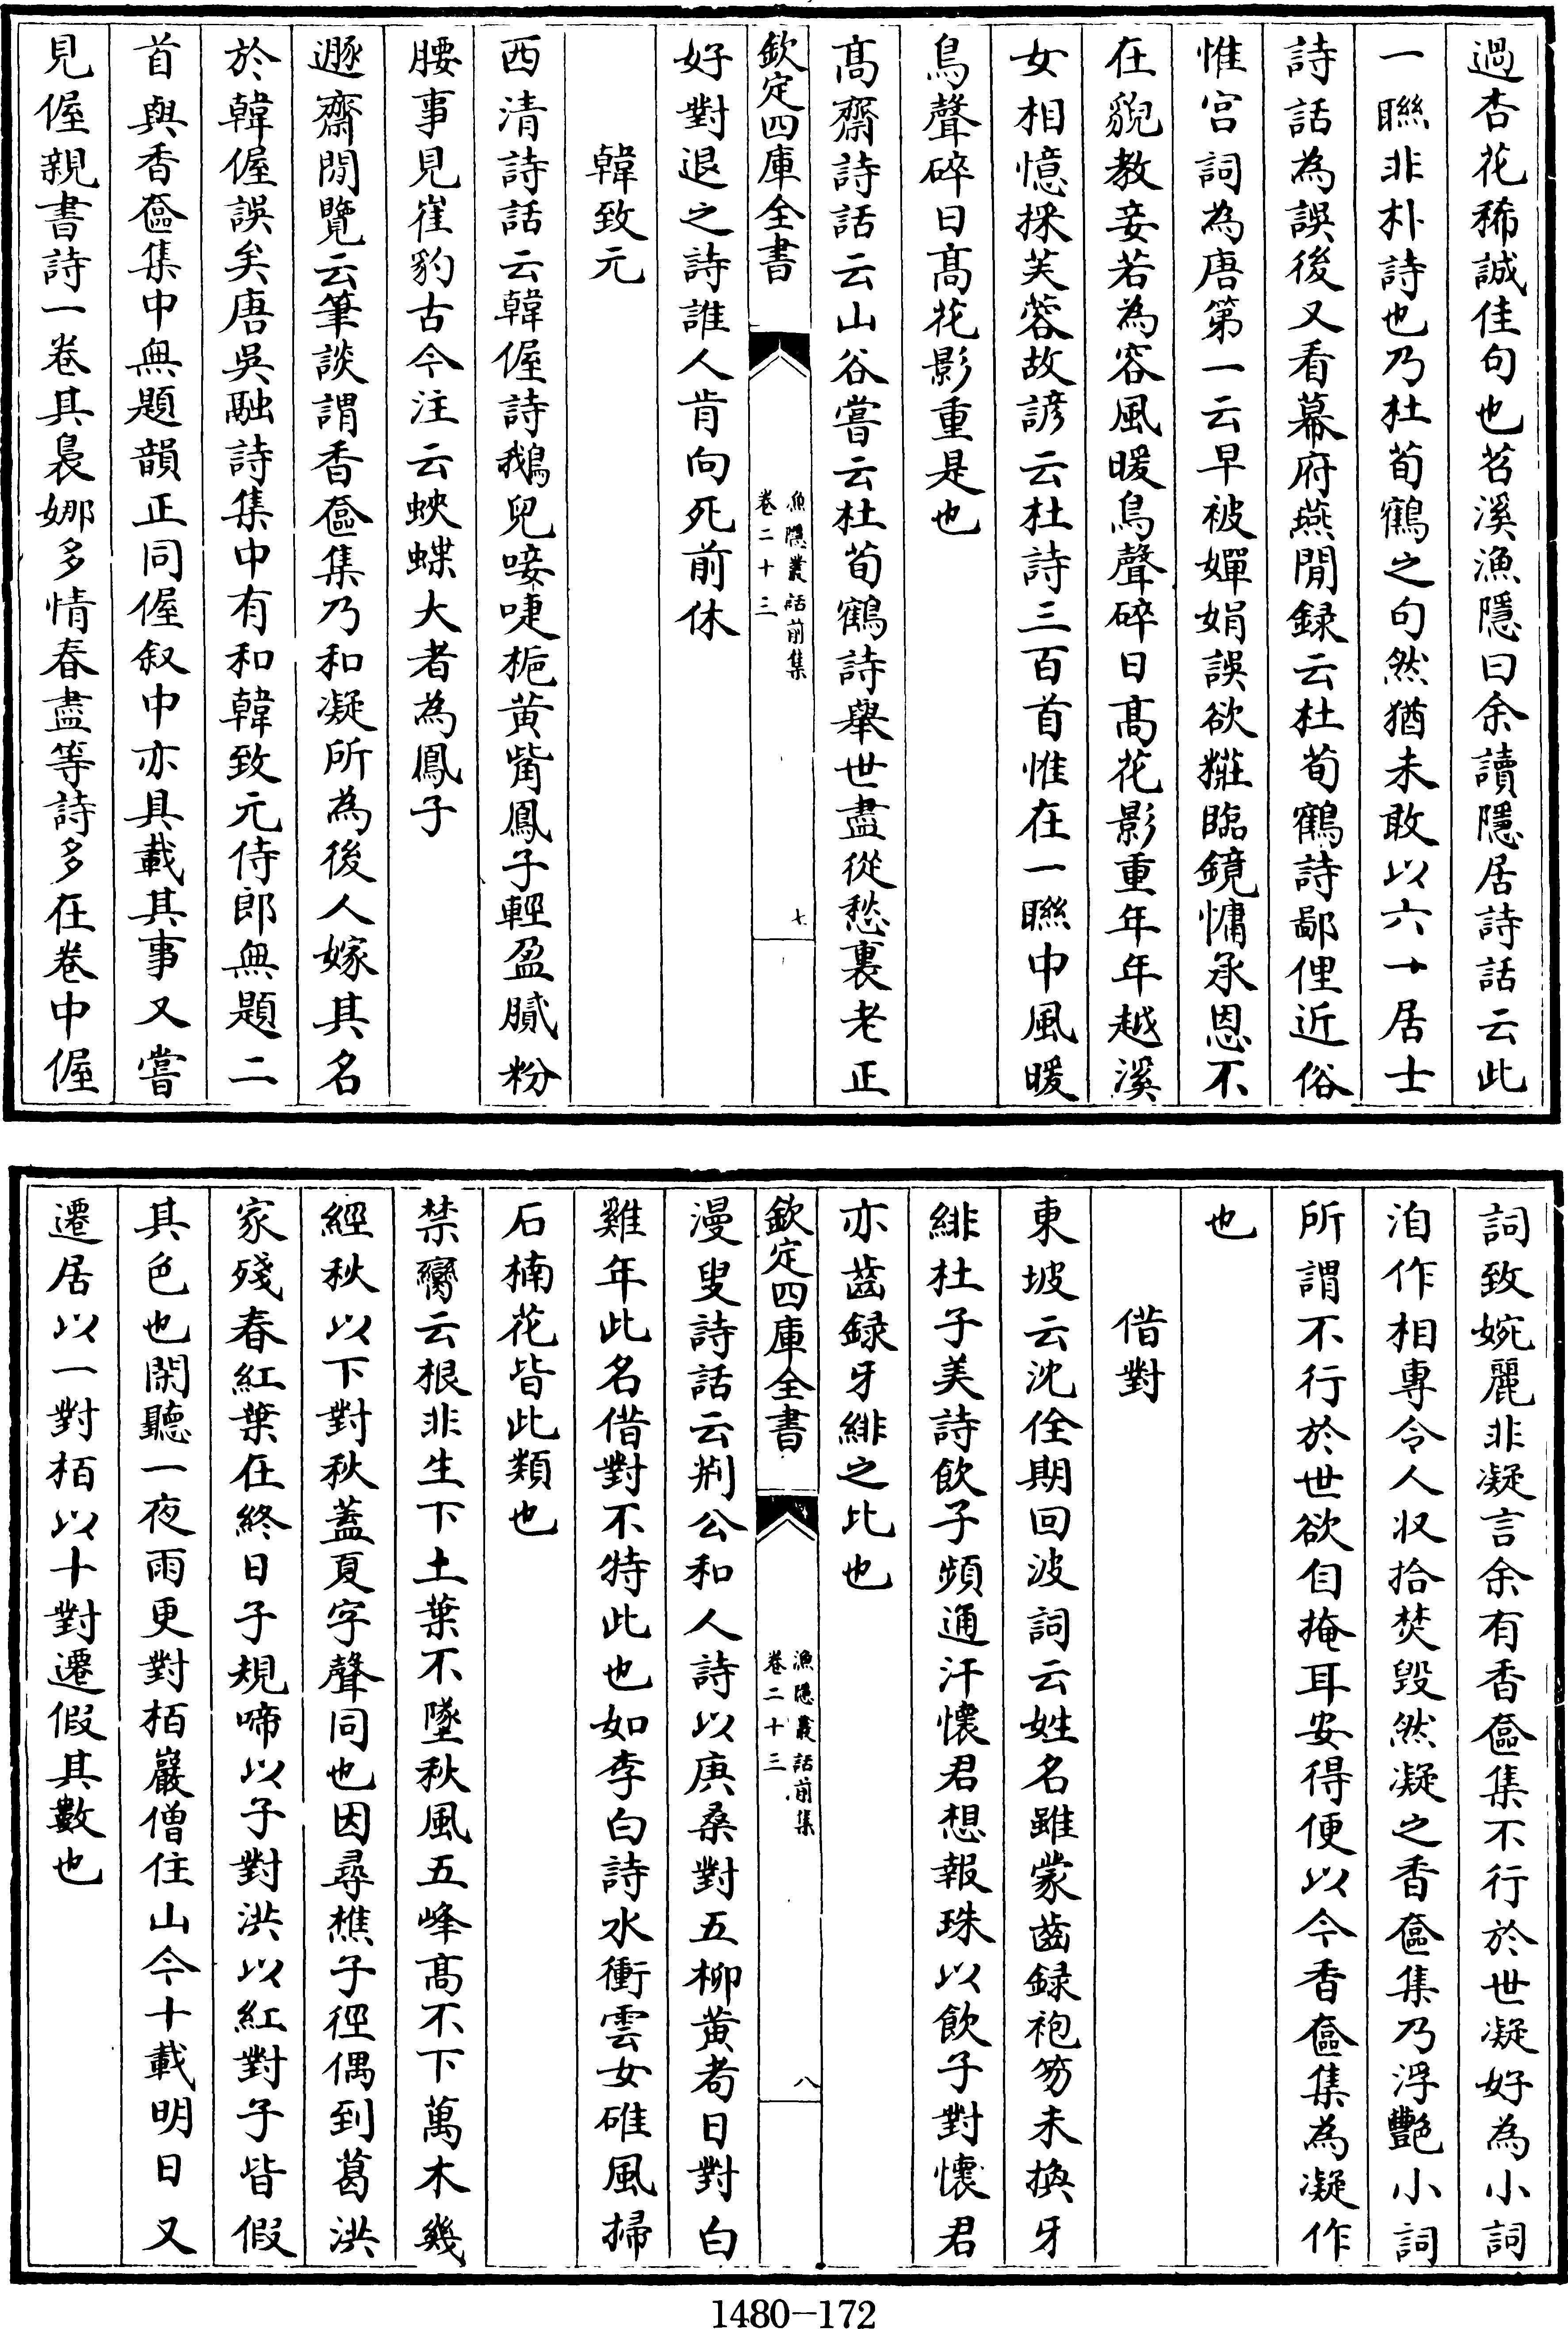 過杏花稀誠佳句也苕溪漁隱曰余讀隱居詩話云此
一聯非朴詩也乃杜荀鶴之句然猶未敢以六一居士
詩話為誤後又看幕府燕閒録云杜荀鶴詩鄙俚近俗
惟宮詞為唐第一云早被嬋娟誤欲糚臨鏡慵承恩不
在貌教妾若為容風暖鳥聲碎日髙花影重年年越溪
女相憶採芙蓉故諺云杜詩三百首惟在一聯中風暖
鳥聲碎日髙花影重是也
髙齋詩話云山谷嘗云杜荀鶴詩舉世盡從愁裏老正
欽定四庫全書
漁隱叢話前集
卷二十三
七
好對退之詩誰人肯向死前休
韓致元
西清詩話云韓偓詩鵝兒唼啑梔黄觜鳳子輕盈膩粉
腰事見崔豹古今注云蛺蝶大者為鳳子
遯齋閒覽云筆談謂香奩集乃和凝所為後人嫁其名
於韓偓誤矣唐吳融詩集中有和韓致元侍郎無題二
首與香奩集中無題韻正同偓叙中亦具載其事又嘗
見偓親書詩一卷其裊娜多情春盡等詩多在卷中偓
詞致婉麗非凝言余有香奩集不行於世凝好為小詞
洎作相專令人收拾焚毀然凝之香奩集乃浮艷小詞
所謂不行於世欲自掩耳安得便以今香奩集為凝作
也
借對
東坡云沈佺期回波詞云姓名雖蒙齒録袍笏未換牙
緋杜子美詩飲子頻通汗懷君想報珠以飲子對懷君
亦齒録牙緋之比也
欽定四庫全書
漁隱叢話前集
卷二十三
八
漫叟詩話云荆公和人詩以庚桑對五柳黄耇日對白
雞年此名借對不特此也如李白詩水衝雲女碓風掃
石楠花皆此類也
禁臠云根非生下土葉不墜秋風五峰髙不下萬木幾
經秋以下對秋蓋夏字聲同也因尋樵子徑偶到葛洪
家殘春紅葉在終日子規啼以子對洪以紅對子皆假
其色也閑聽一夜雨更對栢巖僧住山今十載明日又
遷居以一對栢以十對遷假其數也
1480-172